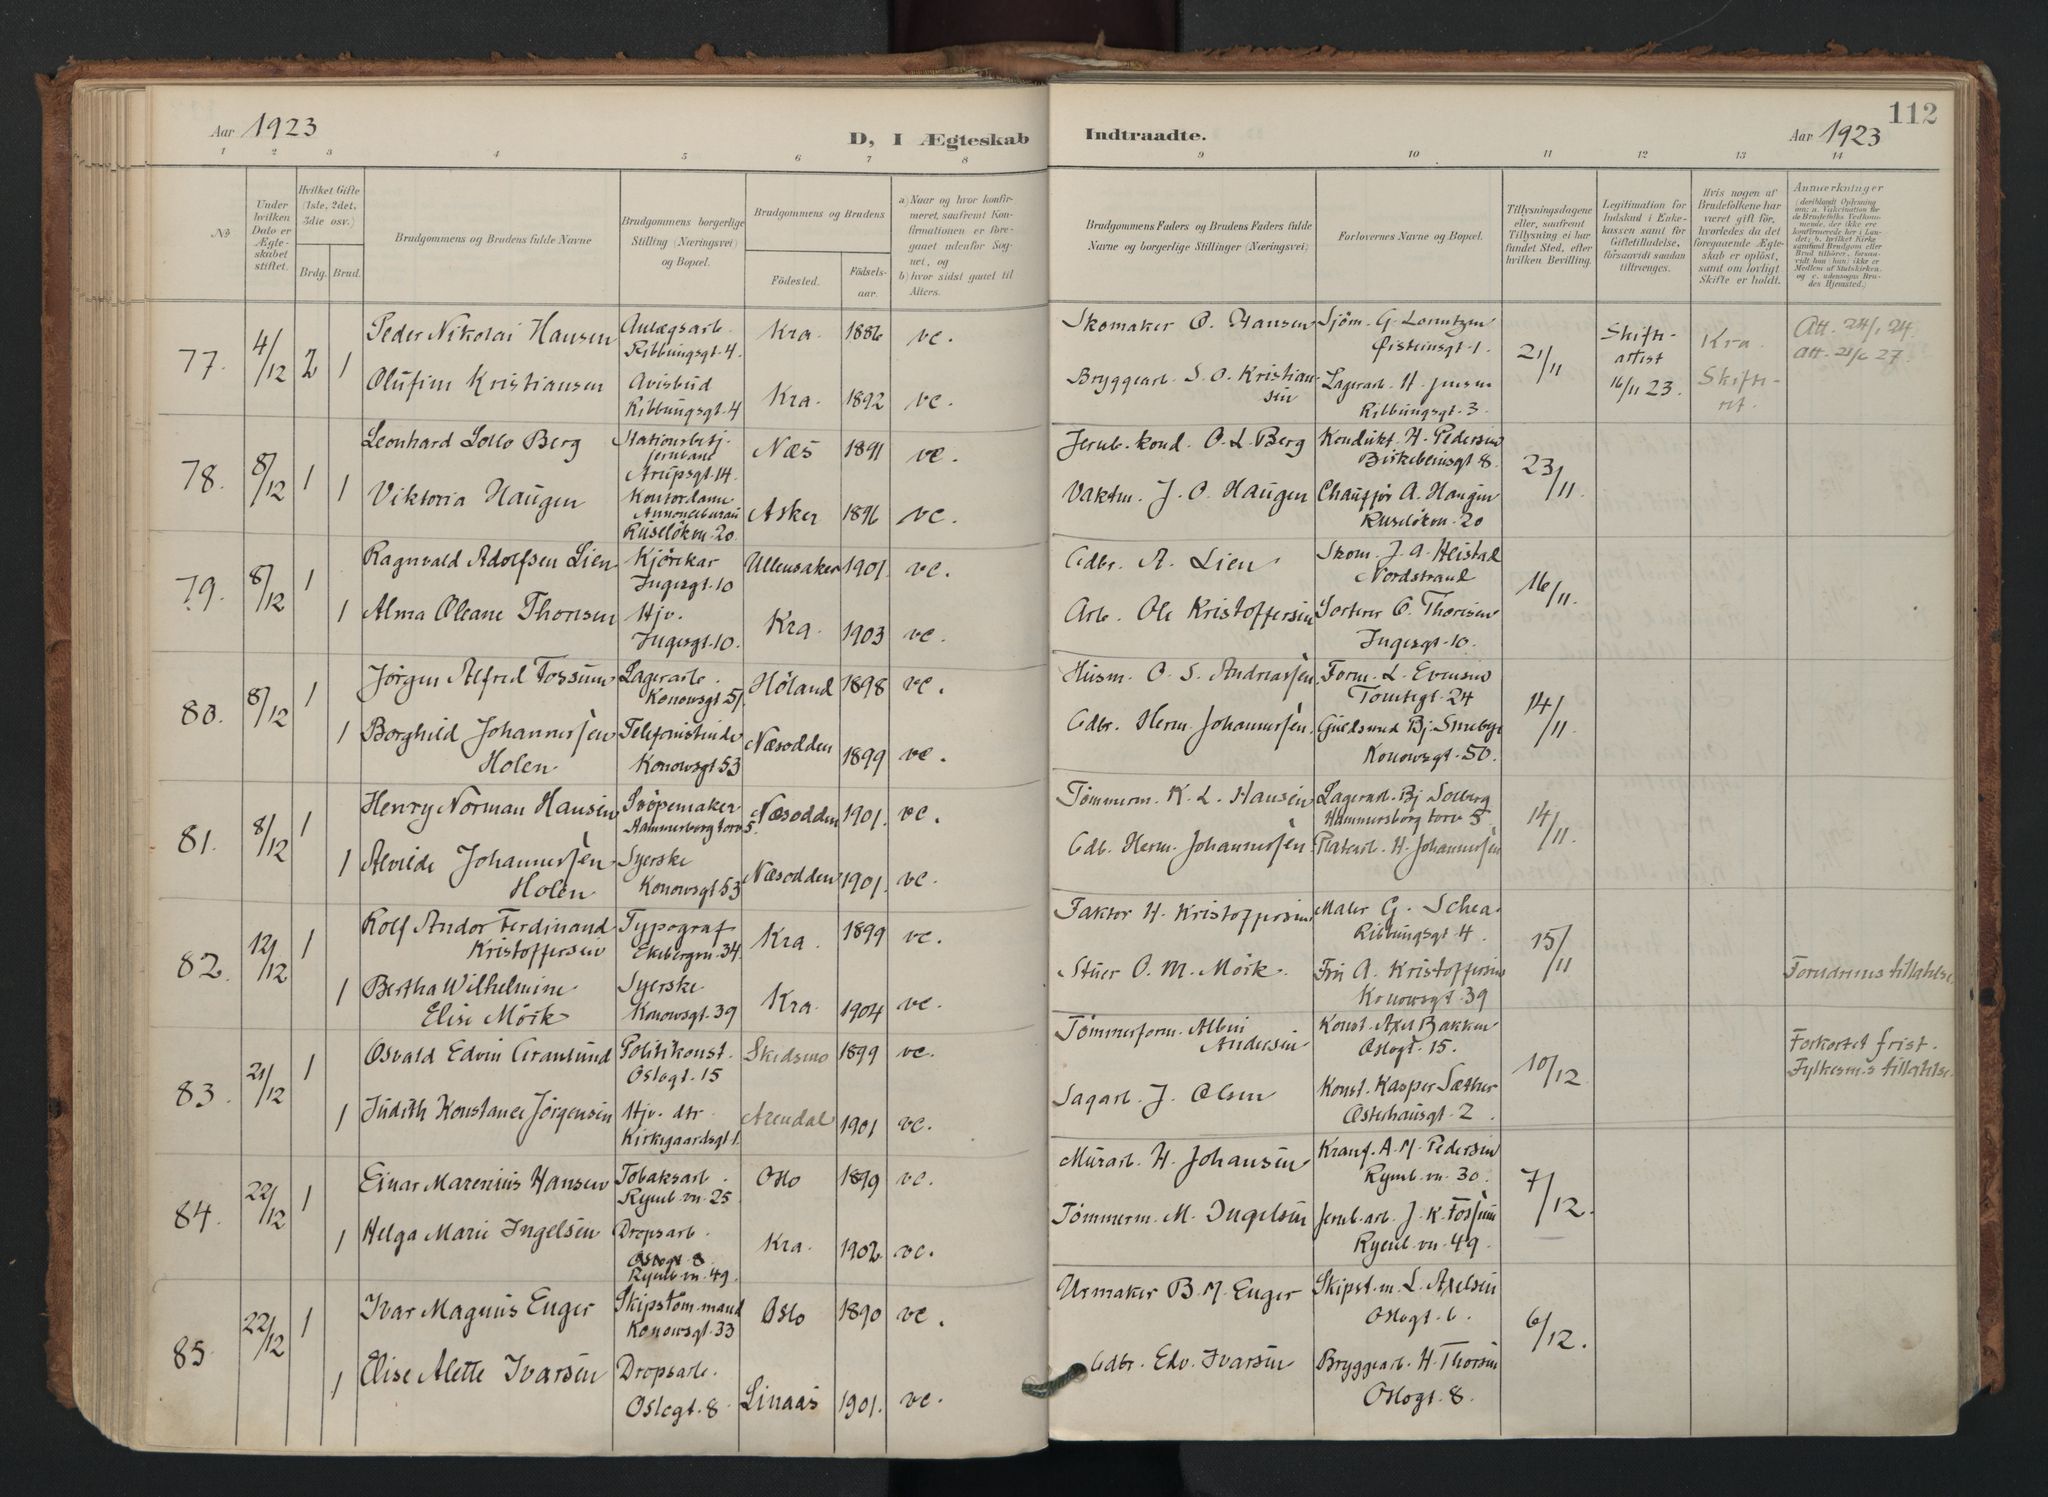 Aar 1923
D, I Ægteskab
Indtraadte.
Aar 1923
112
1 2 3 4 5 6 7 8 9 10 11 12 13 14
No
Under hvilken Dato er Ægteskabet stiftet.
Hvilket Gifte (1ste, 2det, 3die osv.)
Brdg. Brud.
Brudgommens og Brudens fulde Navne
Brudgommens borgerlige Stilling (Næringsvei) og Bopæl.
Brudgommens og Brudens
Födested.
Födsels-aar.
a) Naar og hvor konfirmeret, saafremt Konfirmationen er foregaaet udenfor Sognet, og
b) hvor sidst gaaet til Alters.
Brudgommens Faders og Brudens Faders fulde Navne og borgerlige Stillinger (Næringsvei)
Forlovernes Navne og Bopæl.
Tillysningsdagene eller, saafremt Tillysning ei har fundet Sted, efter hvilken Bevilling.
Legitimation for Indskud i Enkekassen samt for Giftetilladelse, forsaavidt saadan tiltrænges.
Hvis nogen af Brudefolkene har været gift för, hvorledes da det foregaaende Ægteskab er oplöst, samt om lovligt Skifte er holdt.
Anmerkninger
77. 4/12 2 1
Peder Nikolai Hansen
Anlægsarb.
Ribbungsgt. 4.
Kra. 1886 vc.
Skomaker O. Hansen
Sjöm. G. Lorentzen
Öisteinsgt. 1.
21/11
Skifte-
attest
16/11 23.
Kra.
Skifte-
ret.
Att. 24/1 24.
Att. 21/6 27.
Olufine Kristiansen
Avisbud
Ribbungsgt. 4
Kra. 1892 vc.
Bryggearb. S. O. Kristian-
sen
Lagerarb. H. Jensen
Ribbungsgt. 3.
78. 8/12 1 1
Leonhard Berg
Stationsbetj.
jernbane
Arupsgt. 14
Næs 1891 vc.
Jernb. kond. O. L. Berg
Kondukt. H. Pedersen
Birkebeinsgt 8.
23/11.
Viktoria Haugen
Kontordame
Annoncebureau
Ruselökvn. 20
Asker 1896 vc.
Vaktm. J. O. Haugen
Chaufför A. Haugen
Ruselökvn. 20
79. 8/12 1 1
Ragnvald Adolfsen Lien
Kjörekar
Ingesgt. 10
Ullensaker 1901. vc.
Gdbr. A. Lien
Skom. J. A. Heistad
Nordstrand
16/11.
Alma Oleane Thoresen
Hjv.
Ingesgt. 10.
Kra. 1903 vc.
Arb. Ole Kristoffersen
Sorterer O. Thoresen
Ingesgt. 10.
80. 8/12 1 1
Jörgen Alfred Fossum
Lagerarb.
Konowsgt 51.
Höland 1898 vc.
Husm. O. S. Andreassen
Form. L. Evensen
Tomtegt. 24
14/11.
Borghild Johannessen
Holen
Telefonistinde
Konowsgt 53
Næsodden 1899 vc.
Gdbr. Herm. Johannessen.
Guldsmed Bj. Smeby
Konowsgt. 50.
81. 8/12 1 1
Henry Norman Hansen
Svöpemaker
Hammerborg torv 5.
Næsodden 1901. vc.
Tömmerm. K. L. Hansen
Lagerarb. Bj Solberg
Hammersborg torv 5
14/11.
Alvilde Johannessen
Holen
Syerske
Konowsgt 53
Næsodden 1901. vc.
Gdb. Herm. Johannessen.
Platearb. H. Johannessen
82. 12/12 1 1
Rolf Andor Ferdinand
Kristoffersen
Typograf
Ekebergvn. 34
Kra. 1899 vc.
Faktor H. Kristoffersen
Maler G. Schea.
Ribbungsgt. 4.
15/11
Bertha Wilhelmine
Elise Mörk
Syerske
Konowsgt. 39
Kra. 1904 vc.
Stuer O. M. Mörk.
Fru A. Kristoffersen
Konowsgt. 39
83. 21/12 1 1
Osvald Edvin Granlund
Politikonst.
Oslogt. 15
Skedsmo 1899 vc.
Tömmerform. Albin
Andersen
Konst. Axel Bakken
Oslogt. 15.
10/12.
Forkortet frist.
Fylkesm.s tillatelse.
Judith Konstance Jörgensen
Hjv. dtr
Kirkegaardsgt 1.
Arendal 1901 vc.
Sagarb. J. Olsen
Konst. Kasper Sæther
Osterhausgt. 2
84. 22/12 1 1
Einar Marenius Hansen
Tobaksarb.
Rymb. vn. 25
Oslo 1899 vc.
Murarb. H. Johansen
Kranf. A. M. Pedersen
Rymb. vn. 30.
7/12.
Helga Marie Ingelsen
Dropsarb.
Oslogt 8
Rymb. vn. 49.
Kra. 1902 vc.
Tömmerm. M. Ingelsen
Jernb. arb. J. K. Fossum
Rymb. vn. 49.
85. 22/12 1 1
Ivar Magnus Enger
Skipstöm. mand
Konowsgt. 33
Oslo 1890 vc.
Urmaker B. M. Enger
Skipst. m. L. Axelsen
Oslogt. 6.
6/12.
Elise Alette Ivarsen
Dropsarb.
Oslogt. 8
Linaas 1901. vc.
Gdbr. Edv. Ivarsen
Bryggearb. H. Thorsen
Oslogt. 8.